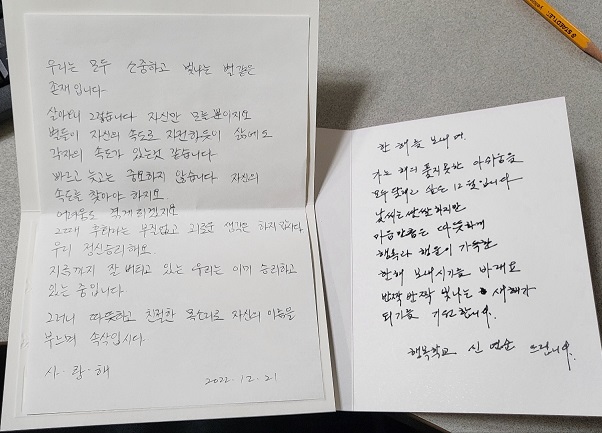 우리는 모두 소중하고 빛나는 별 같은
존재입니다
살아보니 그렇습니다 자신만 모를 뿐이지요
별들이 자신의 속도로 자전하듯이 삶에도
각자의 속도가 있는것 같습니다
빠르고 늦고는 중요하지 않습니다 자신의
속도를 찾아야 하지요
어려움도 겪게 되겠지요
그때 후회하는 부질없고 괴로운 생각은 하지 맙시다
우리 정신승리해요
지금까지 잘 버티고 있는 우리는 이미 승리하고
있는 중입니다
그러니 따뜻하고 친절한 목소리로 자신의 이름을
부르며 속삭입시다
사·랑·해
2022.12.21
한 해를 보내며.
가는 해의 풀지못한 아쉬움을
모두 달래고 싶은 12월입니다
날씨는 쌀쌀하지만
마음만큼은 따뜻하게
행복과 행운이 가득한
한해 보내시기를 바래요
반짝반짝 빛나는 새해가
되기를 기원합니다.
행복학교 신연순 드립니다.
STAEDTLER